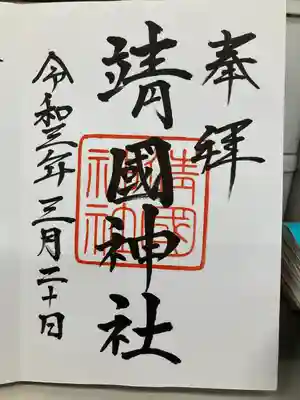 奉拝
靖國神社
靖國神社
令和三年三月二十日